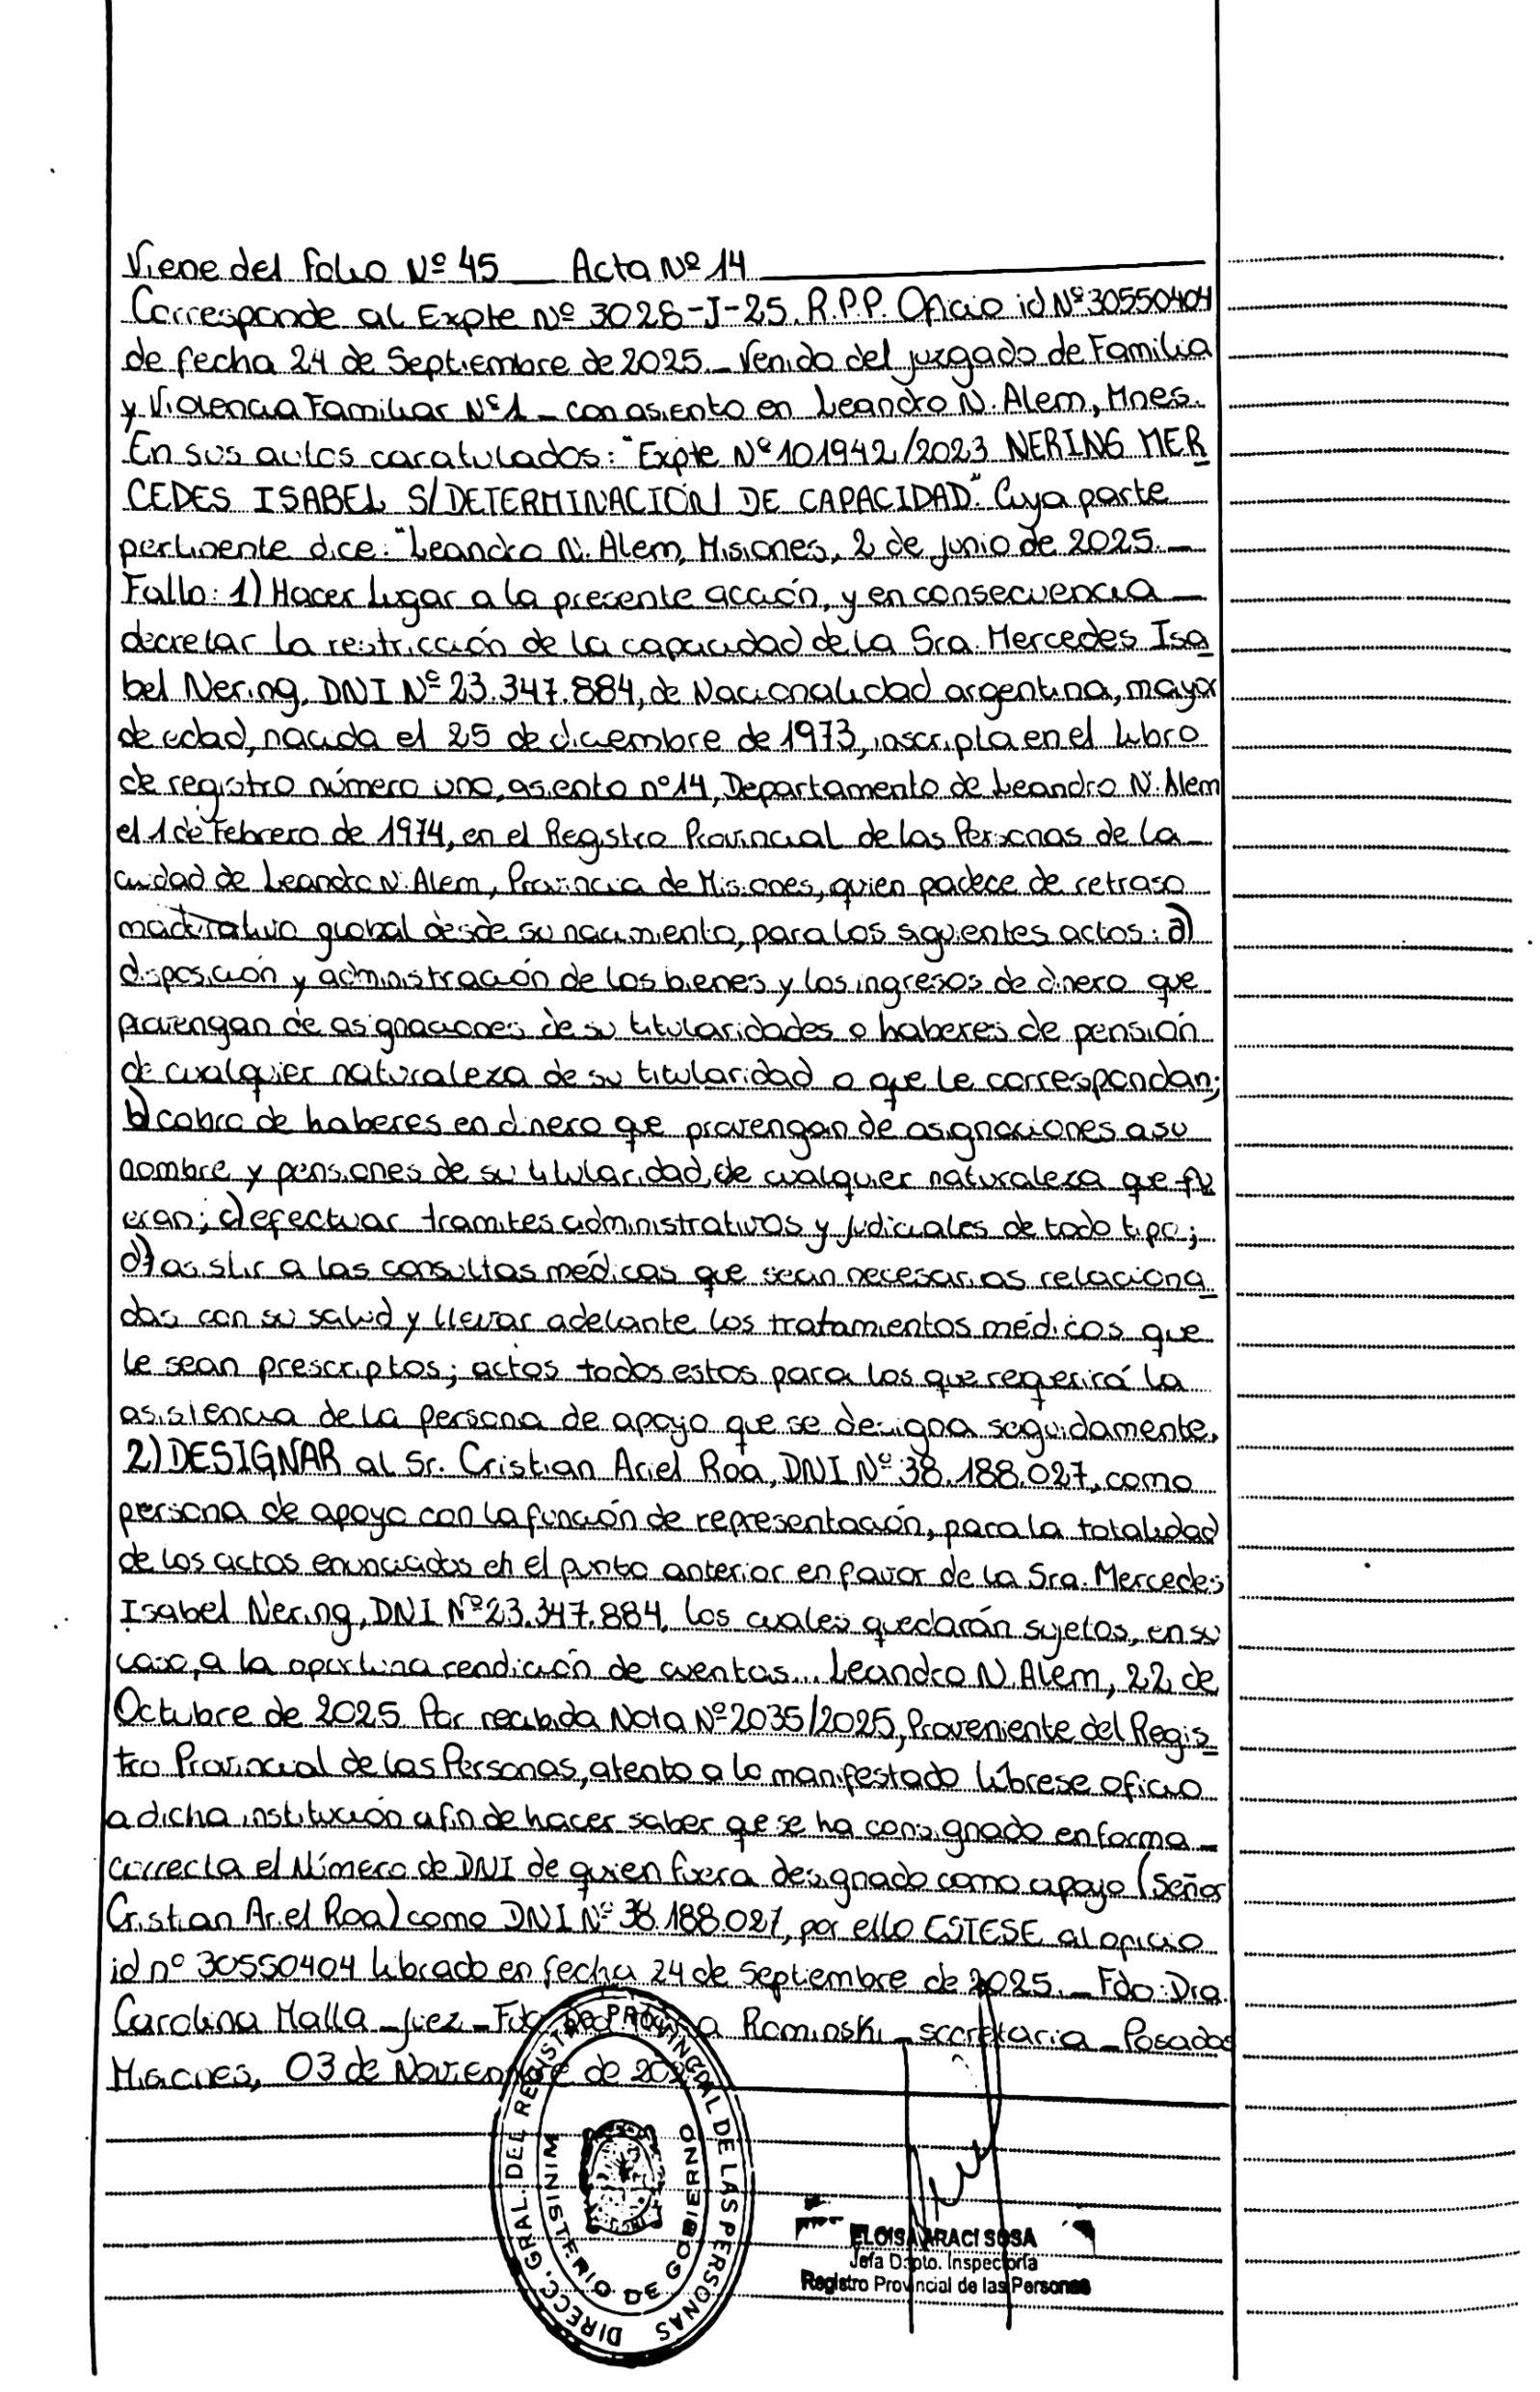 Viene del folio Nº 45 __ Acta Nº 14
Corresponde al Expte Nº 3028-J-25. R.P.P. Oficio id Nº 30550404
de fecha 24 de Septiembre de 2025._ Venido del juzgado de Familia
y Violencia Familiar Nº 1 _ con asiento en Leandro N. Alem, Mnes.
En sus autos caratulados: "Expte Nº 101942/2023 NERING MER
CEDES ISABEL S/DETERMINACIÓN DE CAPACIDAD". Cuya parte
pertinente dice: "Leandro N. Alem, Misiones, 2 de junio de 2025._
Fallo: 1) Hacer lugar a la presente acción, y en consecuencia _
decretar la restricción de la capacidad de la Sra. Mercedes Isa
bel Nering, DNI Nº 23.347.884, de Nacionalidad argentina, mayor
de edad, nacida el 25 de diciembre de 1973, inscripta en el libro
de registro número uno, asiento nº 14, Departamento de Leandro N. Alem
el 1 de Febrero de 1974, en el Registro Provincial de las Personas de la _
ciudad de Leandro N. Alem, Provincia de Misiones, quien padece de retraso
madurativo global desde su nacimiento, para los siguientes actos: a)
disposición y administración de los bienes y los ingresos de dinero que
provengan de asignaciones de su titularidades o haberes de pensión
de cualquier naturaleza de su titularidad o que le correspondan;
b) cobro de haberes en dinero que provengan de asignaciones a su
nombre y pensiones de su titularidad, de cualquier naturaleza que fu
eran; c) efectuar tramites administrativos y judiciales de todo tipo;
d) asistir a las consultas médicas que sean necesarias relaciona
das con su salud y llevar adelante los tratamientos médicos que
le sean prescriptos; actos todos estos para los que requerirá la
asistencia de la persona de apoyo que se designa seguidamente.
2) DESIGNAR al Sr. Cristian Ariel Roa, DNI Nº 38.188.027, como
persona de apoyo con la función de representación, para la totalidad
de los actos enunciados en el punto anterior en favor de la Sra. Mercedes
Isabel Nering, DNI Nº 23.347.884, los cuales quedarán sujetos, en su
caso, a la oportuna rendición de cuentas... Leandro N. Alem, 22 de
Octubre de 2025. Por recibida Nota Nº 2035/2025, Proveniente del Regis
tro Provincial de las Personas, atento a lo manifestado líbrese oficio
a dicha institución a fin de hacer saber que se ha consignado en forma _
correcta el Número de DNI de quien fuera designado como apoyo (Señor
Cristian Ariel Roa) como DNI Nº 38.188.027, por ello ESTESE al oficio
id nº 30550404 librado en fecha 24 de Septiembre de 2025._ Fdo: Dra.
Carolina Malla _ Juez _ Rominski _ secretaria _ Posadas
Misiones, 03 de Noviembre de
DIRECC. GRAL. DEL REGISTRO PROVINCIAL DE LAS PERSONAS
MINISTERIO DE GOBIERNO
ELOISA ARACI SOSA
Jefa Dpto. Inspectoría
Registro Provincial de las Personas